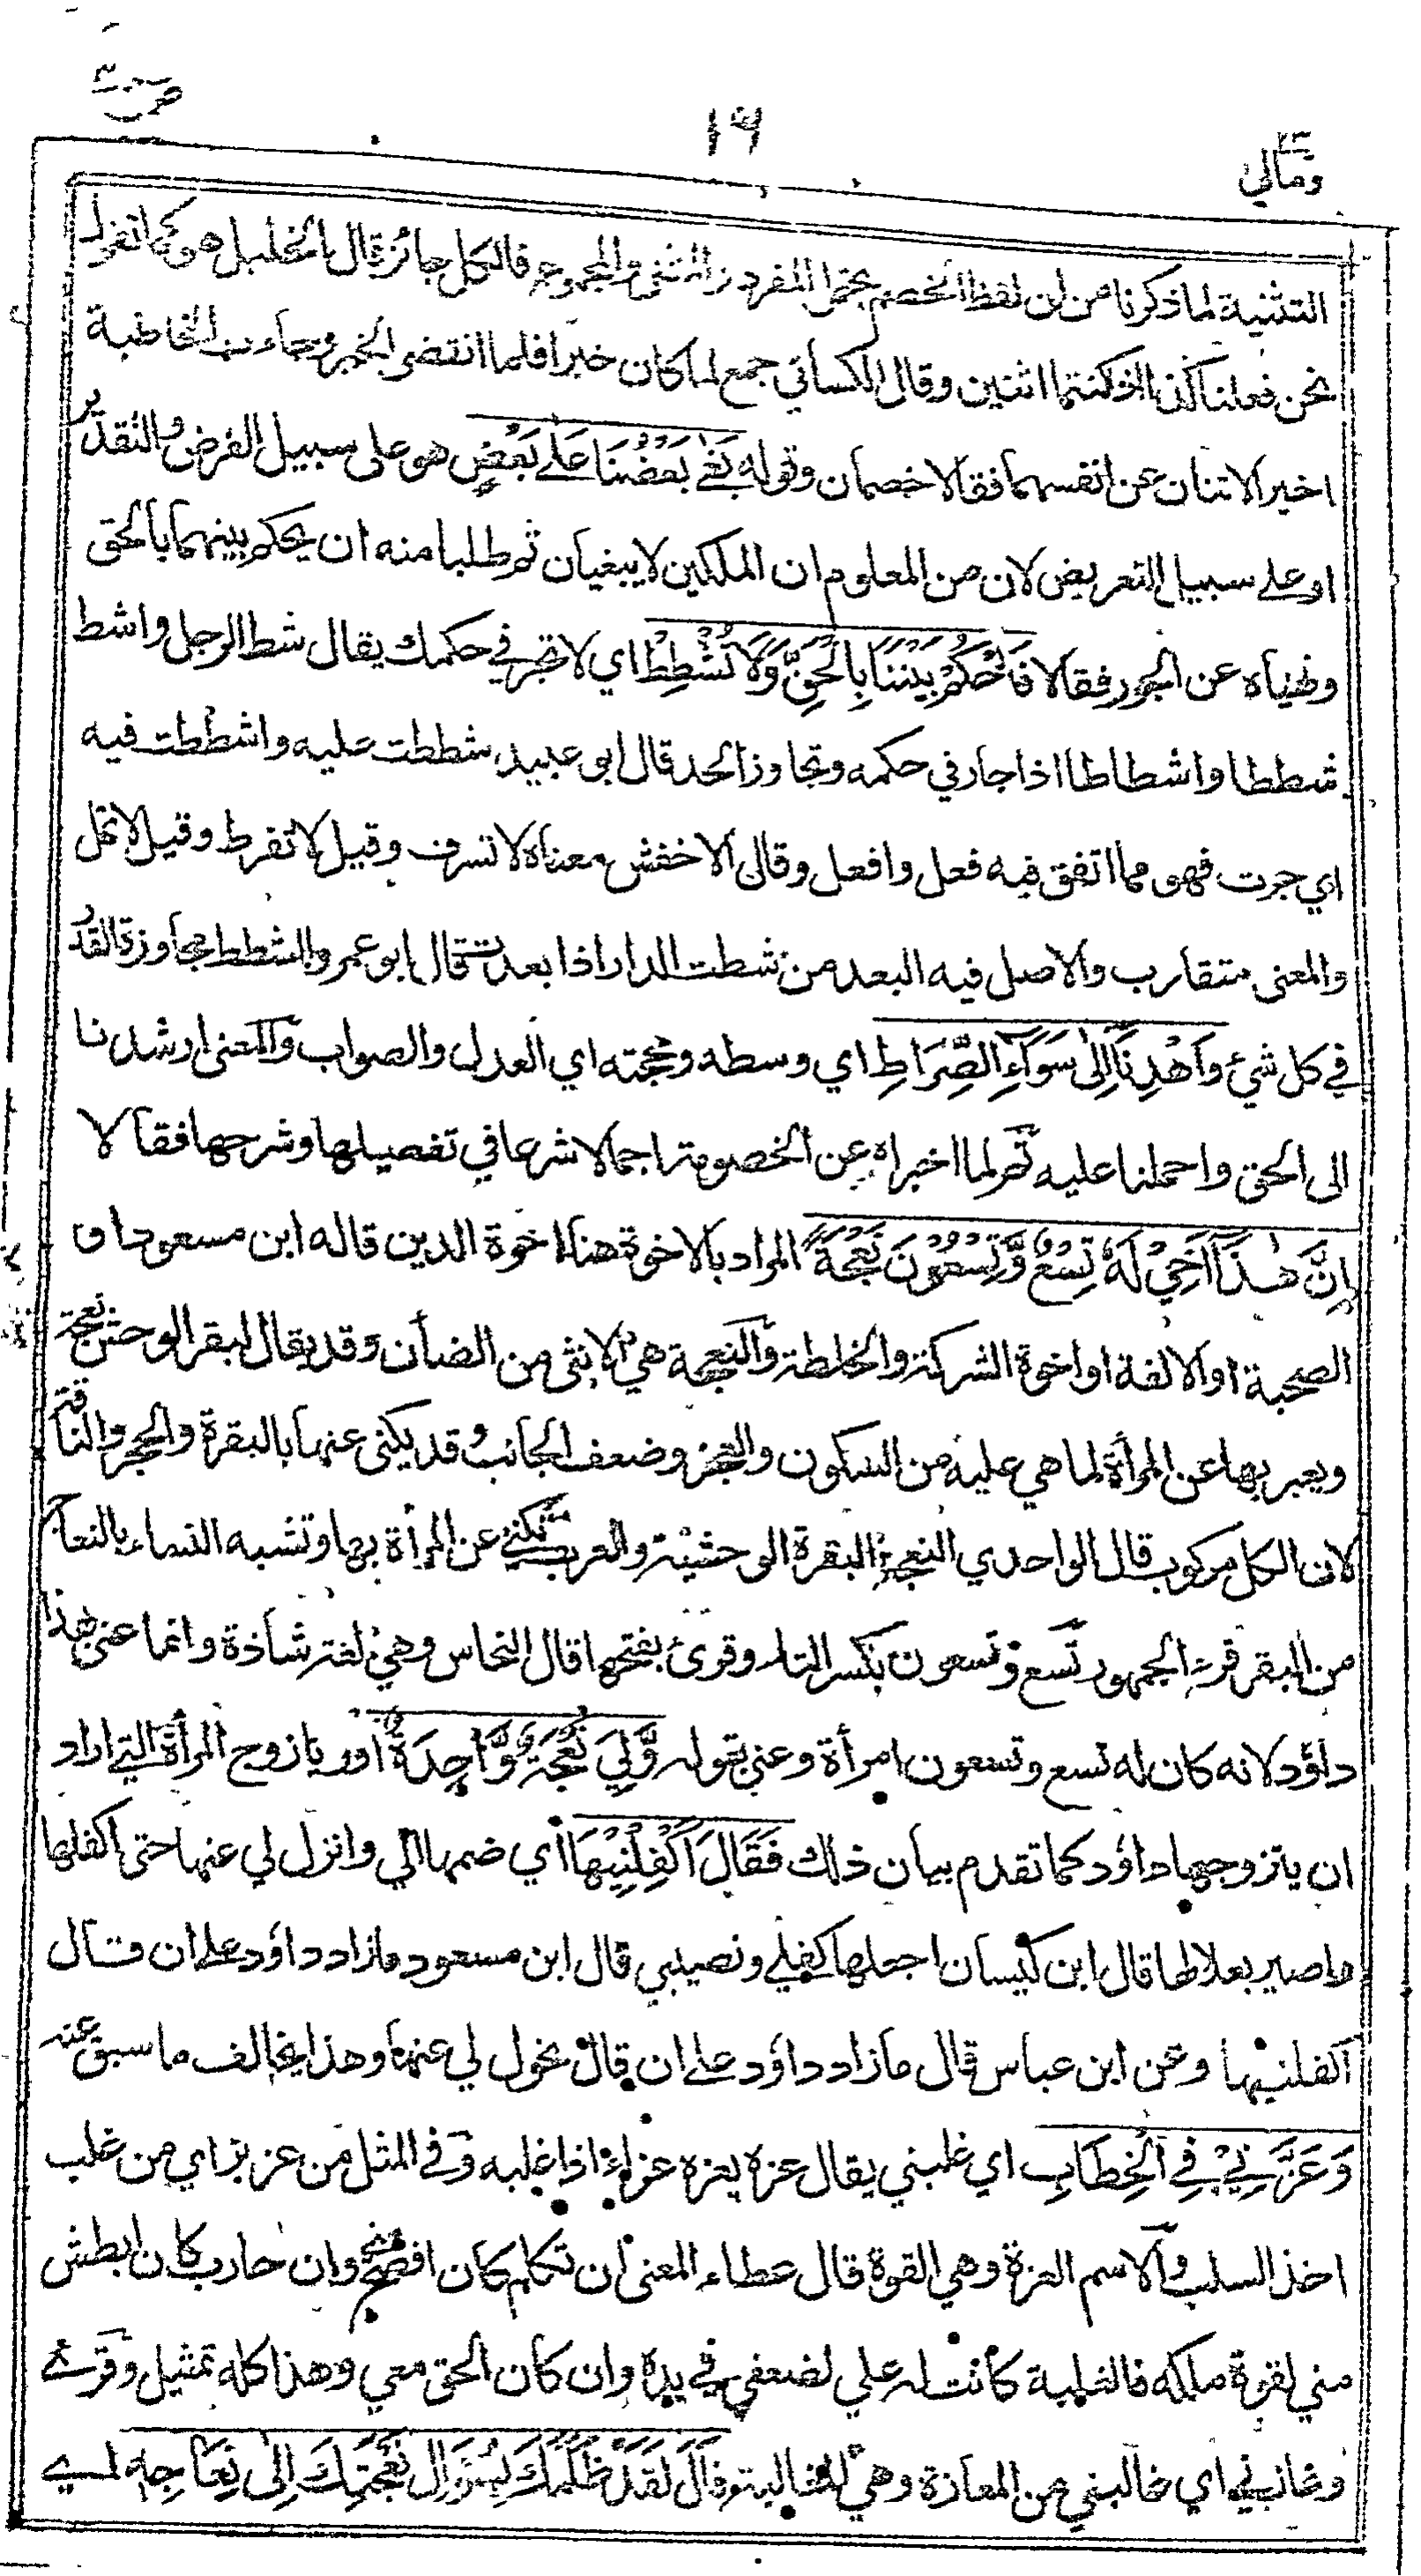 ص
١٩
ومالي
التثنية لما ذكرنا من ان لفظ الخصم يحتمل المفرد والمثنى والمجموع فالكل جائز قال الخليل هو كما تقول
نحن فعلنا كذا اذا كنتما اثنين وقال الكسائي جمع لما كان خبرا فلما انقضى الخبر وجاءت المخاطبة
اخبر الاثنان عن انفسهما فقالا خصمان وقوله بَغٰى بَعْضُنَا عَلٰى بَعْضٍ هو على سبيل الفرض والتقدير
او على سبيل التعريض لان من المعلوم ان الملكين لا يبغيان ثم طلبا منه ان يحكم بينهما بالحق
ونهياه عن الجور فقالا فَاحْكُمْ بَيْنَنَا بِالْحَقِّ وَلَا تُشْطِطْ اي لا تجر في حكمك يقال شط الرجل واشط
شططا واشطاطا اذا جار في حكمه وتجاوز الحد قال ابو عبيد شططت عليه واشططت فيه
اي جرت فهو مما اتفق فيه فعل وافعل وقال الاخفش معناه لا تسرف وقيل لا تفرط وقيل لا تمل
والمعنى متقارب والاصل فيه البعد من شطت الدار اذا بعدت قال ابو عمرو الشطط مجاوزة القدر
في كل شئ وَاهْدِنَا اِلٰى سَوَآءِ الصِّرَاطِ اي وسطه ومحجته اي العدل والصواب والمعنى ارشدنا
الى الحق واحملنا عليه ثم لما اخبراه عن الخصومة اجمالا شرعا في تفصيلها وشرحها فقالا
اِنَّ هٰذَآ اَخِيْ لَهٗ تِسْعٌ وَّتِسْعُوْنَ نَعْجَةً المراد بالاخوة هنا اخوة الدين قاله ابن مسعود او
الصحبة او الالفة او اخوة الشركة والخلطة والنعجة هي الانثى من الضأن وقد يقال لبقر الوحش نعجة
ويعبر بها عن المرأة لما هي عليه من السكون والعجز وضعف الجانب وقد يكنى عنها بالبقرة والحجر والناقة
لان الكل مركوب قال الواحدي النعجة البقرة الوحشية والعرب تكنى عن المرأة بها وتشبه النساء بالنعاج
من البقر قرء الجمهور تسع وتسعون بكسر التاء وقرئ بفتحها قال النحاس وهي لغة شاذة وانما عنى بهذا
داؤد لانه كان له تسع وتسعون امرأة وعنى بقوله وَّلِيَ نَعْجَةٌ وَّاحِدَةٌ اوريا زوج المرأة التي اراد
ان يتزوجها داؤد كما تقدم بيان ذلك فَقَالَ اَكْفِلْنِيْهَا اي ضمها الي وانزل لي عنها حتى اكفلها
واصير بعلا لها قال ابن كيسان اجعلها كفلي ونصيبي قال ابن مسعود ما زاد داؤد على ان قال
اكفلنيها وعن ابن عباس قال ما زاد داؤد على ان قال تحول لي عنها وهذا يخالف ما سبق عنه
وَعَزَّنِيْ فِي الْخِطَابِ اي غلبني يقال عزه يعزه عزا اذا غلبه وفي المثل من عز بز اي من غلب
اخذ السلب والاسم العزة وهي القوة قال عطاء المعنى ان تكلم كان افصح مني وان حارب كان ابطش
مني لقوة ملكه فالغلبة كانت له علي لضعفي في يده وان كان الحق معي وهذا كله تمثيل وقرئ
وعازني اي غالبني من المعازة وهي المغالبة قَالَ لَقَدْ ظَلَمَكَ بِسُؤَالِ نَعْجَتِكَ اِلٰى نِعَاجِهٖ لمي